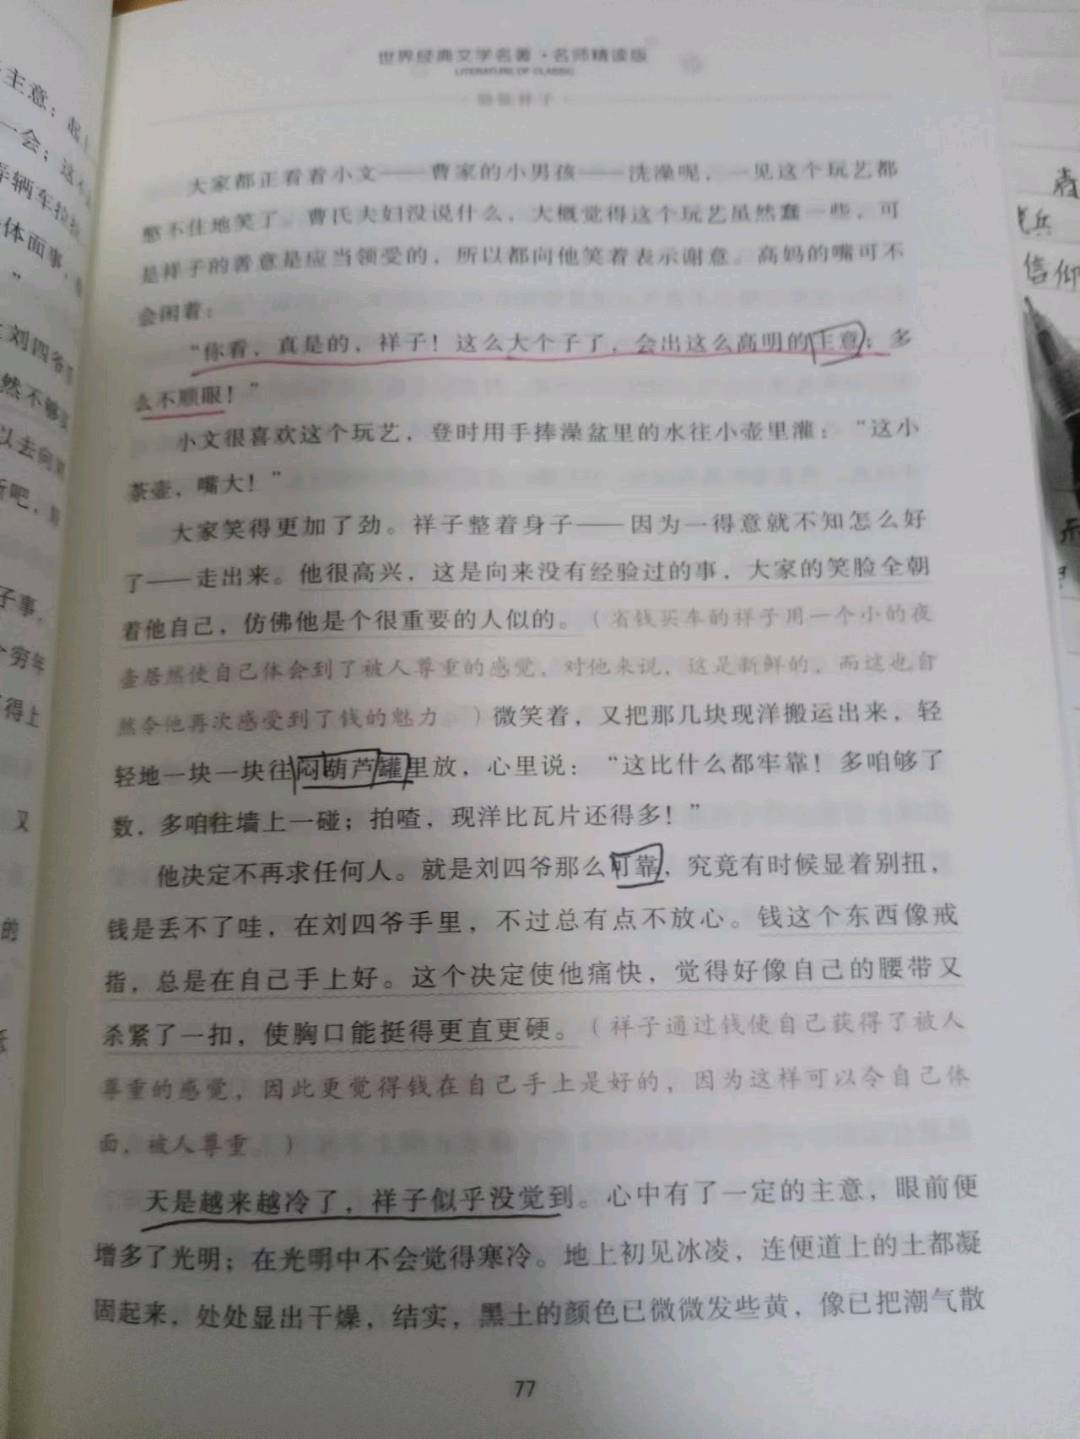 世界经典文学名著·名师精读版
LITERATURE OF CLASSIC
骆驼祥子
大家都正看着小文——曹家的小男孩——洗澡呢，一见这个玩艺都
憋不住地笑了。曹氏夫妇没说什么，大概觉得这个玩艺虽然蠢一些，可
是祥子的善意是应当领受的，所以都向他笑着表示谢意。高妈的嘴可不
会闲着：
“你看，真是的，祥子！这么大个子了，会出这么高明的主意；多
么不顺眼！”
小文很喜欢这个玩艺，登时用手捧澡盆里的水往小壶里灌：“这小
茶壶，嘴大！”
大家笑得更加了劲。祥子整着身子——因为一得意就不知怎么好
了——走出来。他很高兴，这是向来没有经验过的事，大家的笑脸全朝
着他自己，仿佛他是个很重要的人似的。（省钱买车的祥子用一个小的夜
壶居然使自己体会到了被人尊重的感觉，对他来说，这是新鲜的，而这也自
然令他再次感受到了钱的魅力。）微笑着，又把那几块现洋搬运出来，轻
轻地一块一块往闷葫芦罐里放，心里说：“这比什么都牢靠！多咱够了
数，多咱往墙上一碰；拍喳，现洋比瓦片还得多！”
他决定不再求任何人。就是刘四爷那么可靠，究竟有时候显着别扭，
钱是丢不了哇，在刘四爷手里，不过总有点不放心。钱这个东西像戒
指，总是在自己手上好。这个决定使他痛快，觉得好像自己的腰带又
杀紧了一扣，使胸口能挺得更直更硬。（祥子通过钱使自己获得了被人
尊重的感觉，因此更觉得钱在自己手上是好的，因为这样可以令自己体
面，被人尊重。）
天是越来越冷了，祥子似乎没觉到。心中有了一定的主意，眼前便
增多了光明；在光明中不会觉得寒冷。地上初见冰凌，连便道上的土都凝
固起来，处处显出干燥，结实，黑土的颜色已微微发些黄，像已把潮气散
77
主意；起
一会；这
辆车拉
体面事，
”
刘四爷
然不够
以去向
吧，
子事，
穷年
得上
又
的
兵
信仰